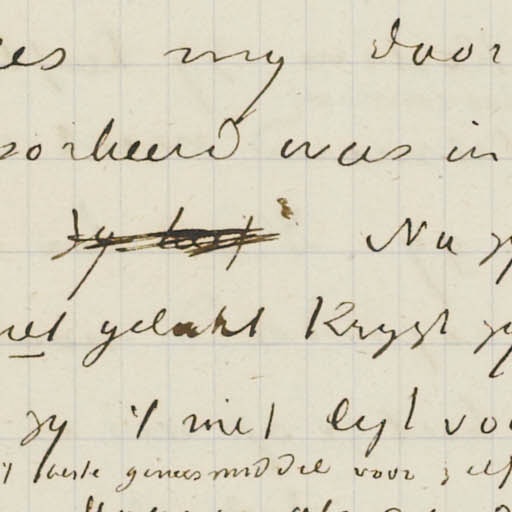 es my door
sorbeerd was in
Nu zy
niet gelukt krygt zy
zy 't niet legt voo
't beste geneesmiddel voor zelf